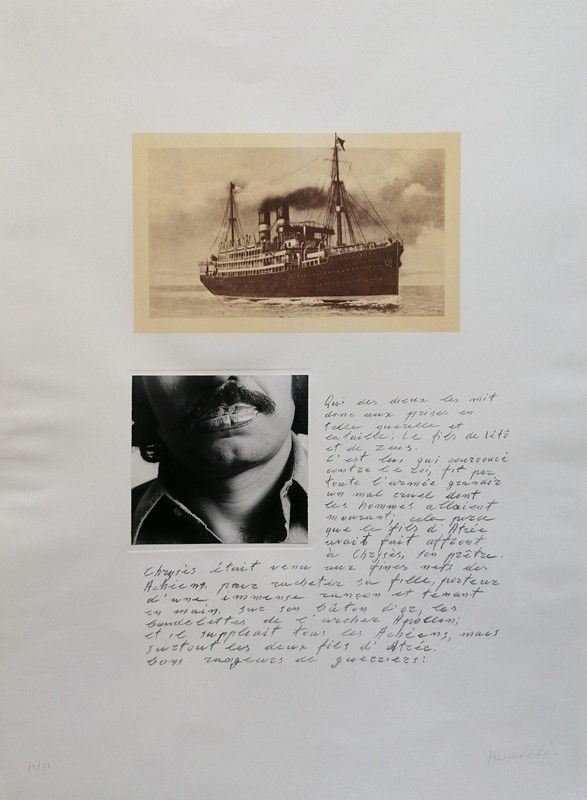 Qui des dieux les mit
donc aux prises en
telle querelle et
bataille? Le fils de Létô
et de Zeus.
C'est lui, qui courroucé
contre le roi, fit par
toute l'armée grandir
un mal cruel dont
les hommes allaient
mourant; cela parce
que le fils d'Atrée
avait fait affront
à Chrysès, son prêtre.
Chrysès était venu aux fines nefs des
Achéens, pour racheter sa fille, porteur
d'une immense rançon et tenant
en main, sur son bâton d'or, les
bandelettes de l'archer Apollon;
et il suppliait tous les Achéens, mais
surtout les deux fils d'Atrée,
bons rangeurs de guerriers:
Kounellis